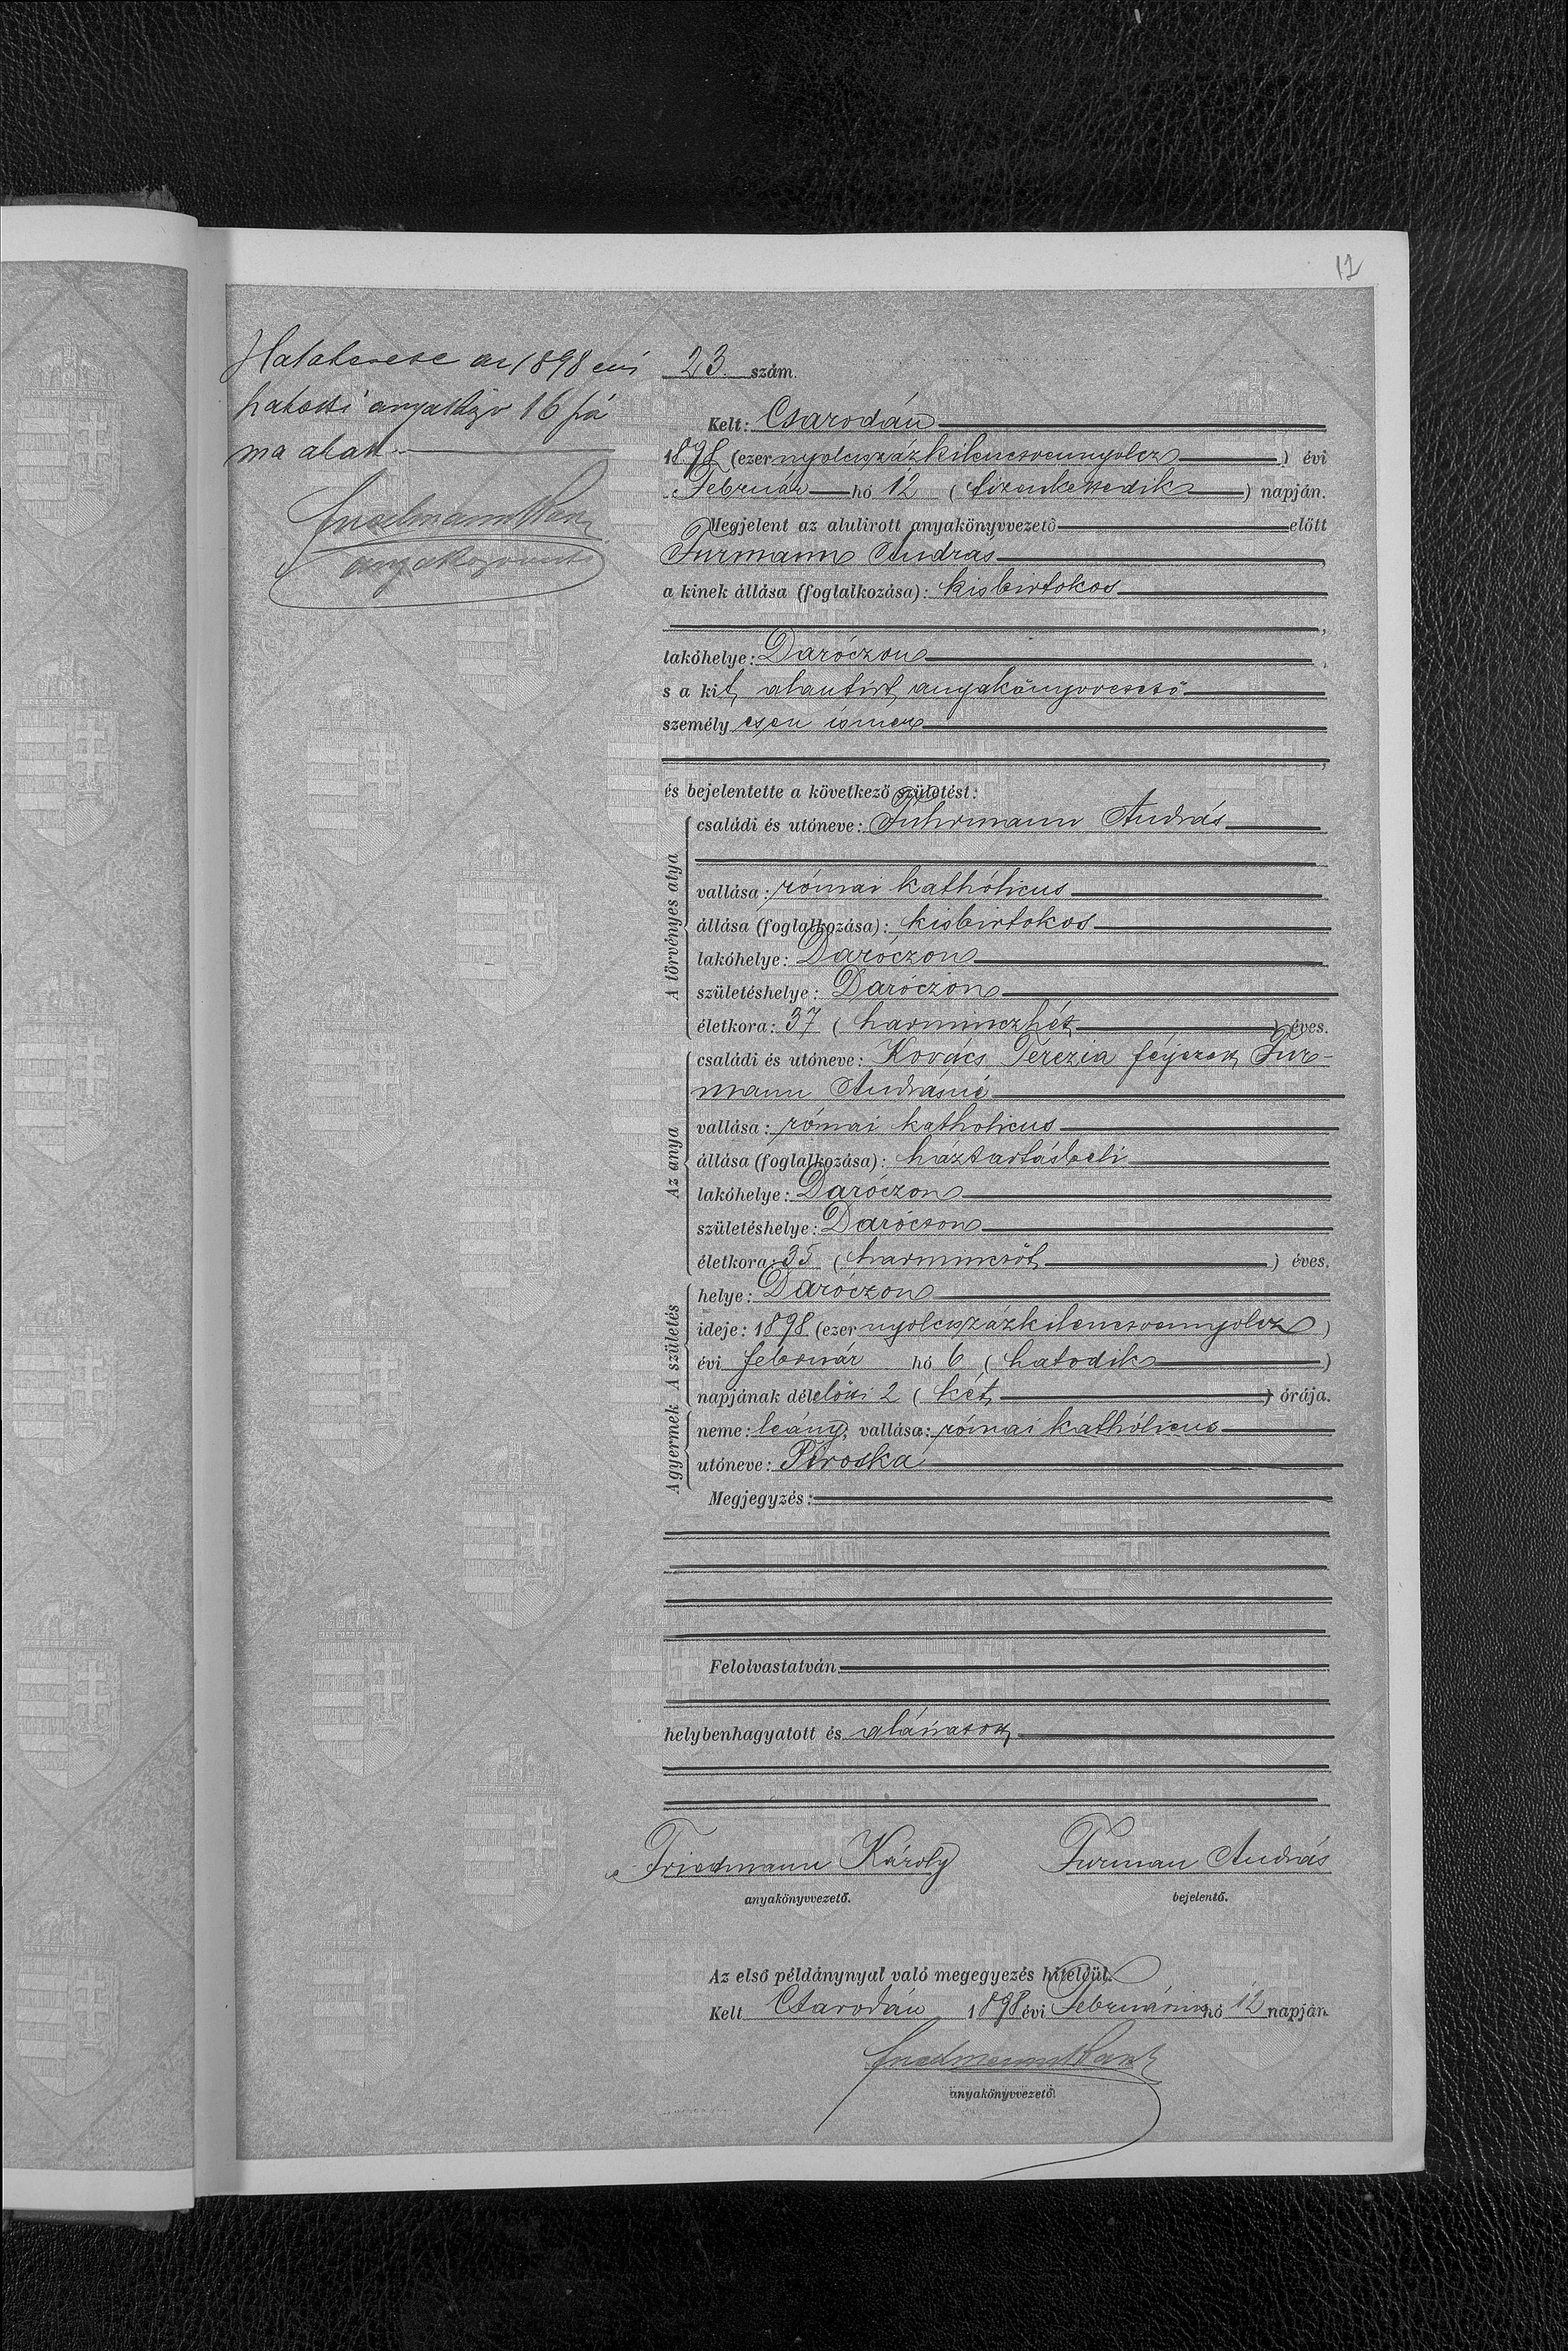 12
Halálesete az 1898 évi
halotti anyakönyv 16 szá
ma alatt.
Friedmann Károly
anyakönyvvezető
23. szám.
Kelt: Csarodán
1898 (ezernyolczszázkilenczvennyolcz) évi
Február hó 12 (tizenkettedik) napján.
Megjelent az alulirott anyakönyvvezető előtt
Furmann András,
a kinek állása (foglalkozása): kisbirtokos
,
lakóhelye: Daróczon,
s a kit alantírt anyakönyvvezető
személyesen ismer
,
és bejelentette a következő születést:
A törvényes atya
családi és utóneve: Fuhrmann András
vallása: római kathólicus
állása (foglalkozása): kisbirtokos
lakóhelye: Daróczon
születéshelye: Daróczon
életkora: 37 (harminczhét) éves.
Az anya
családi és utóneve: Kovács Terezia férjezett Fur-
mann Andrásné
vallása: római katholicus
állása (foglalkozása): háztartásbeli
lakóhelye: Daróczon
születéshelye: Daróczon
életkora: 35 (harminczöt) éves.
A születés
helye: Daróczon
ideje: 1898 (ezernyolczszázkilenczvennyolcz)
évi február hó 6 (hatodik)
napjának délelőtti 2 (két) órája.
A gyermek
neme: leány; vallása: római kathólicus
utóneve: Piroska
Megjegyzés:
Felolvastatván
helybenhagyatott és aláíratott
Friedmann Károly Furman András
anyakönyvvezető. bejelentő.
Az első példánynyal való megegyezés hiteléül.
Kelt Csarodán 1898 évi Február hó 12 napján
Friedmann Károly
anyakönyvvezető.